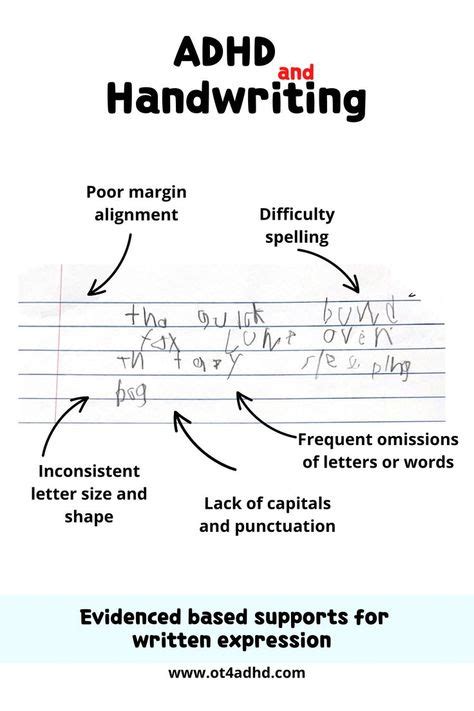 ADHD
and
Handwriting
Poor margin
alignment
Difficulty
spelling
tha quick bund
fox over
th
Frequent omissions
of letters or words
Inconsistent
letter size and
shape
Lack of capitals
and punctuation
Evidenced based supports for
written expression
www.ot4adhd.com